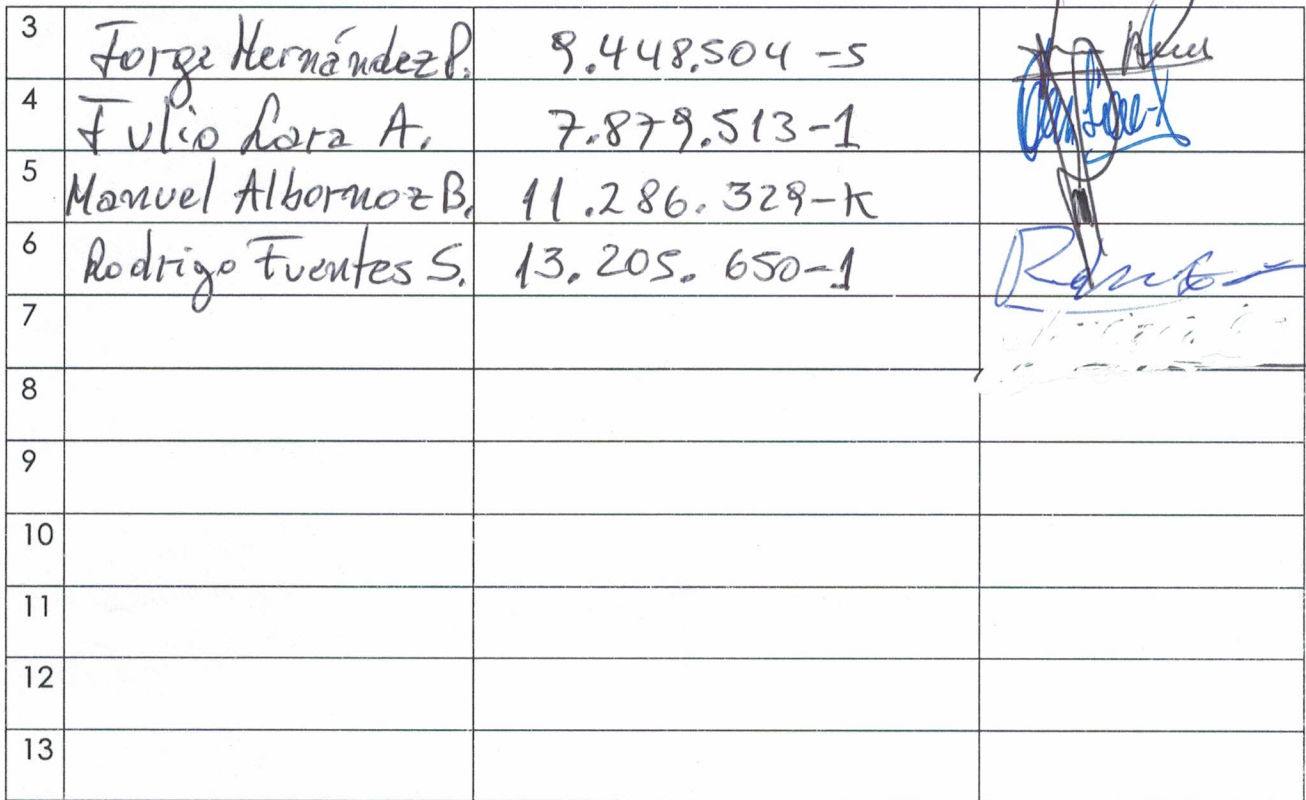 3 Jorge Hernández P. 9.448.504-5
4 Julio Lara A. 7.879.513-1
5 Manuel Albornoz B. 11.286.329-K
6 Rodrigo Fuentes S. 13.205.650-1
7
8
9
10
11
12
13